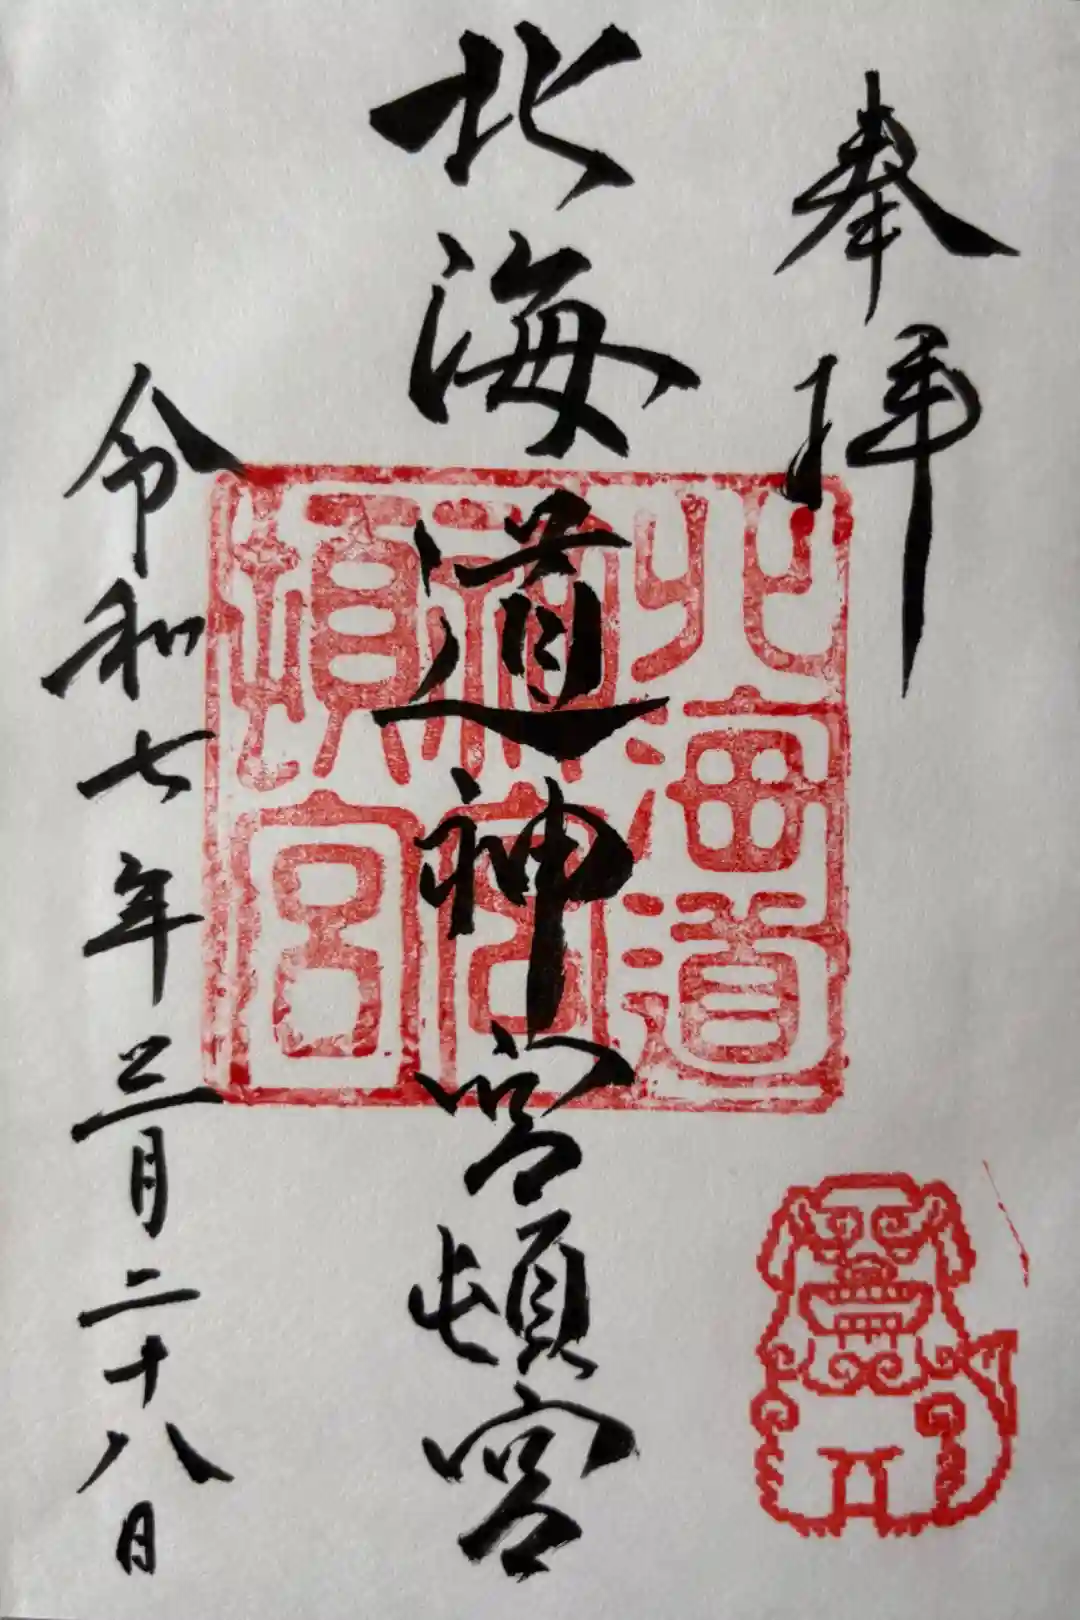 奉拝
北海道神宮頓宮
令和七年三月二十八日
北海道
神宮
頓宮